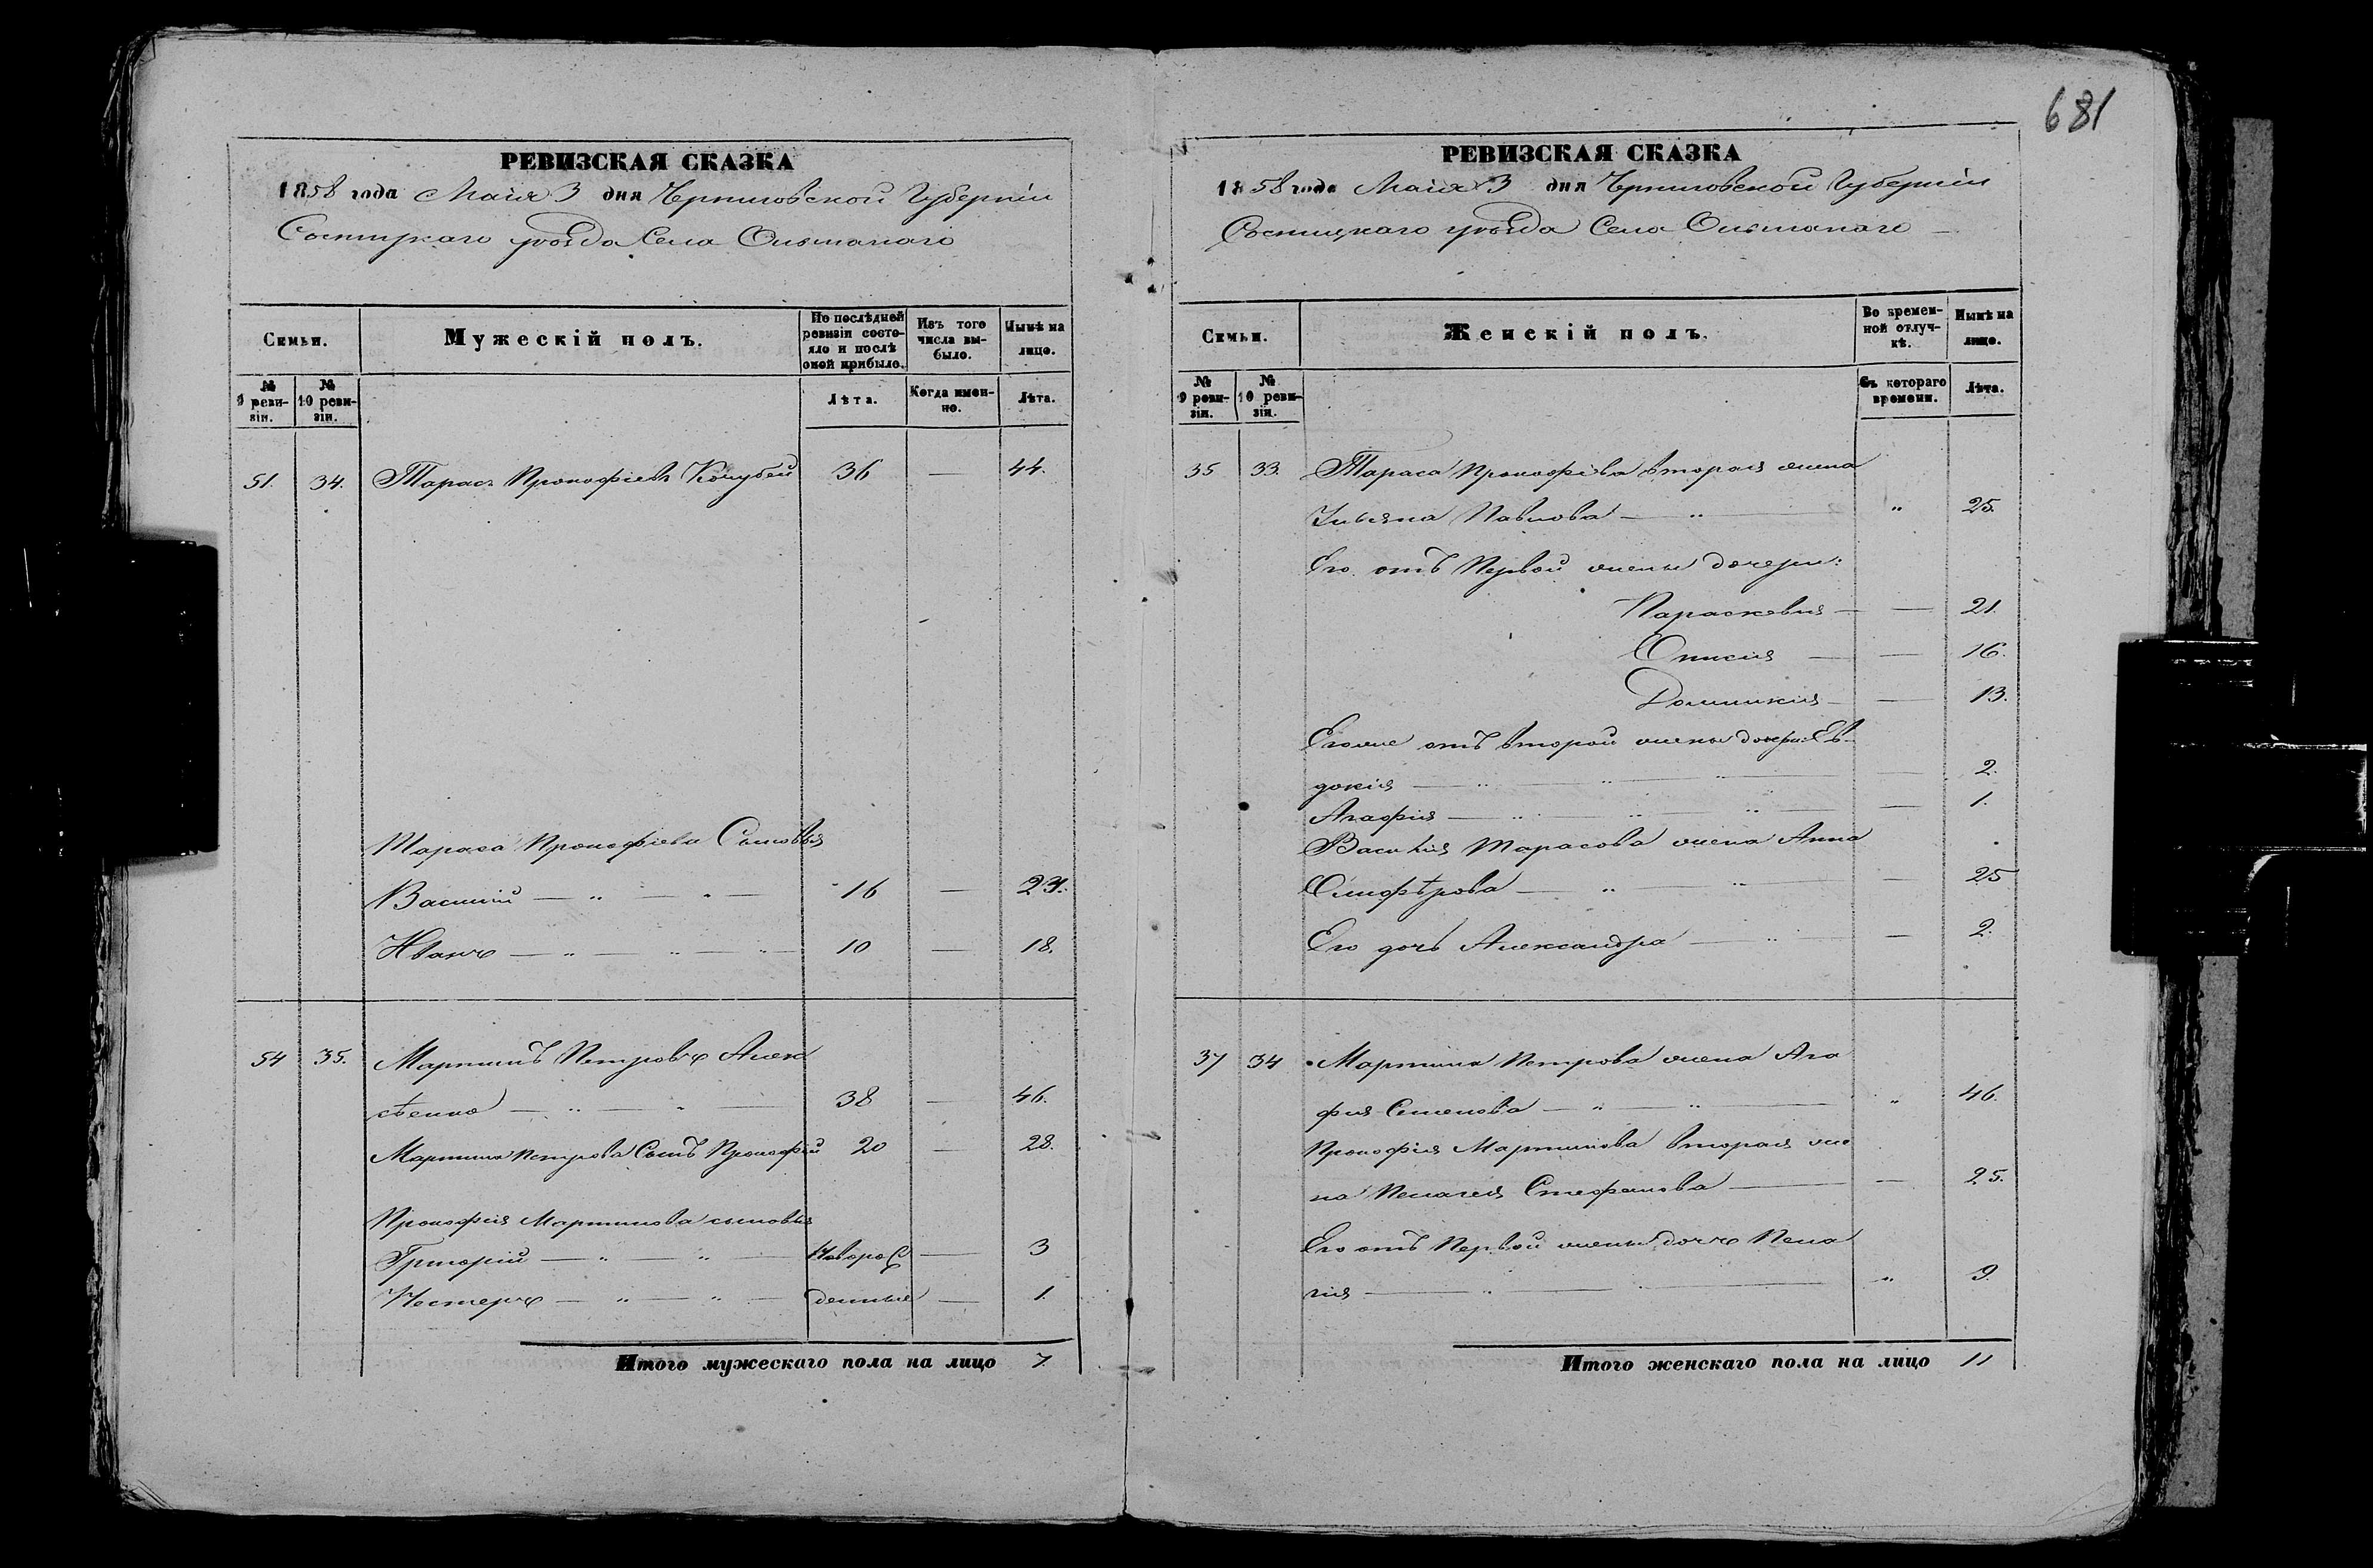 681
РЕВИЗСКАЯ СКАЗКА
1858 года Маія 3 дня Черниговской Губерніи
Сосницкаго уѣзда Села Ольшанаго
Семьи.
Мужескій полъ.
По послѣдней ревизіи состояло и послѣ оной прибыло.
Изъ того числа выбыло.
Нынѣ на лицо.
№ 9 ревизіи.
№ 10 ревизіи.
Лѣта.
Когда именно.
Лѣта.
51. 34. Тарасъ Прокофіевъ Кочубей 36 — 44.
Тараса Прокофіева Сыновья
Василій — " — " — 16 — 24.
Иванъ — " — " — " 10 — 18.
54 35. Мартинъ Петровъ Алек
сѣенко — " — " — 38 — 46.
Мартина Петрова Сынъ Прокофій 20 — 28.
Прокофія Мартинова сыновья
Григорій — " — " — Новорож — 3
Нестеръ — " — " — денные — 1.
Итого мужескаго пола на лицо 7.
РЕВИЗСКАЯ СКАЗКА
1858 года Маія 3 дня Черниговской Губерніи
Сосницкаго уѣзда Села Ольшанаго —
Семьи.
Женскій полъ.
Во временной отлучкѣ.
Нынѣ на лицо.
№ 9 ревизіи.
№ 10 ревизіи.
Съ котораго времени.
Лѣта.
35 33 Тараса Прокофіева вторая жена
Ульяна Павлова — " — " 25.
Его отъ Первой жены дочери:
Параскевия — — 21.
Анисия — — 16.
Домникия — — 13.
Его же отъ второй жены дочери: Ев-
докія — " — " — " — — 2.
Агафія — " — " — " — — 1.
Василия Тарасова жена Анна
Олиферова — " — " — — 25
Его дочь Александра — " — — 2.
37 34 Мартина Петрова жена Ага
фия Семенова — " — " — " 46.
Прокофія Мартинова вторая же
на Пелагея Стефанова — — 25.
Его отъ Первой жены дочь Пела
гія — " — " 9.
Итого женскаго пола на лицо 11